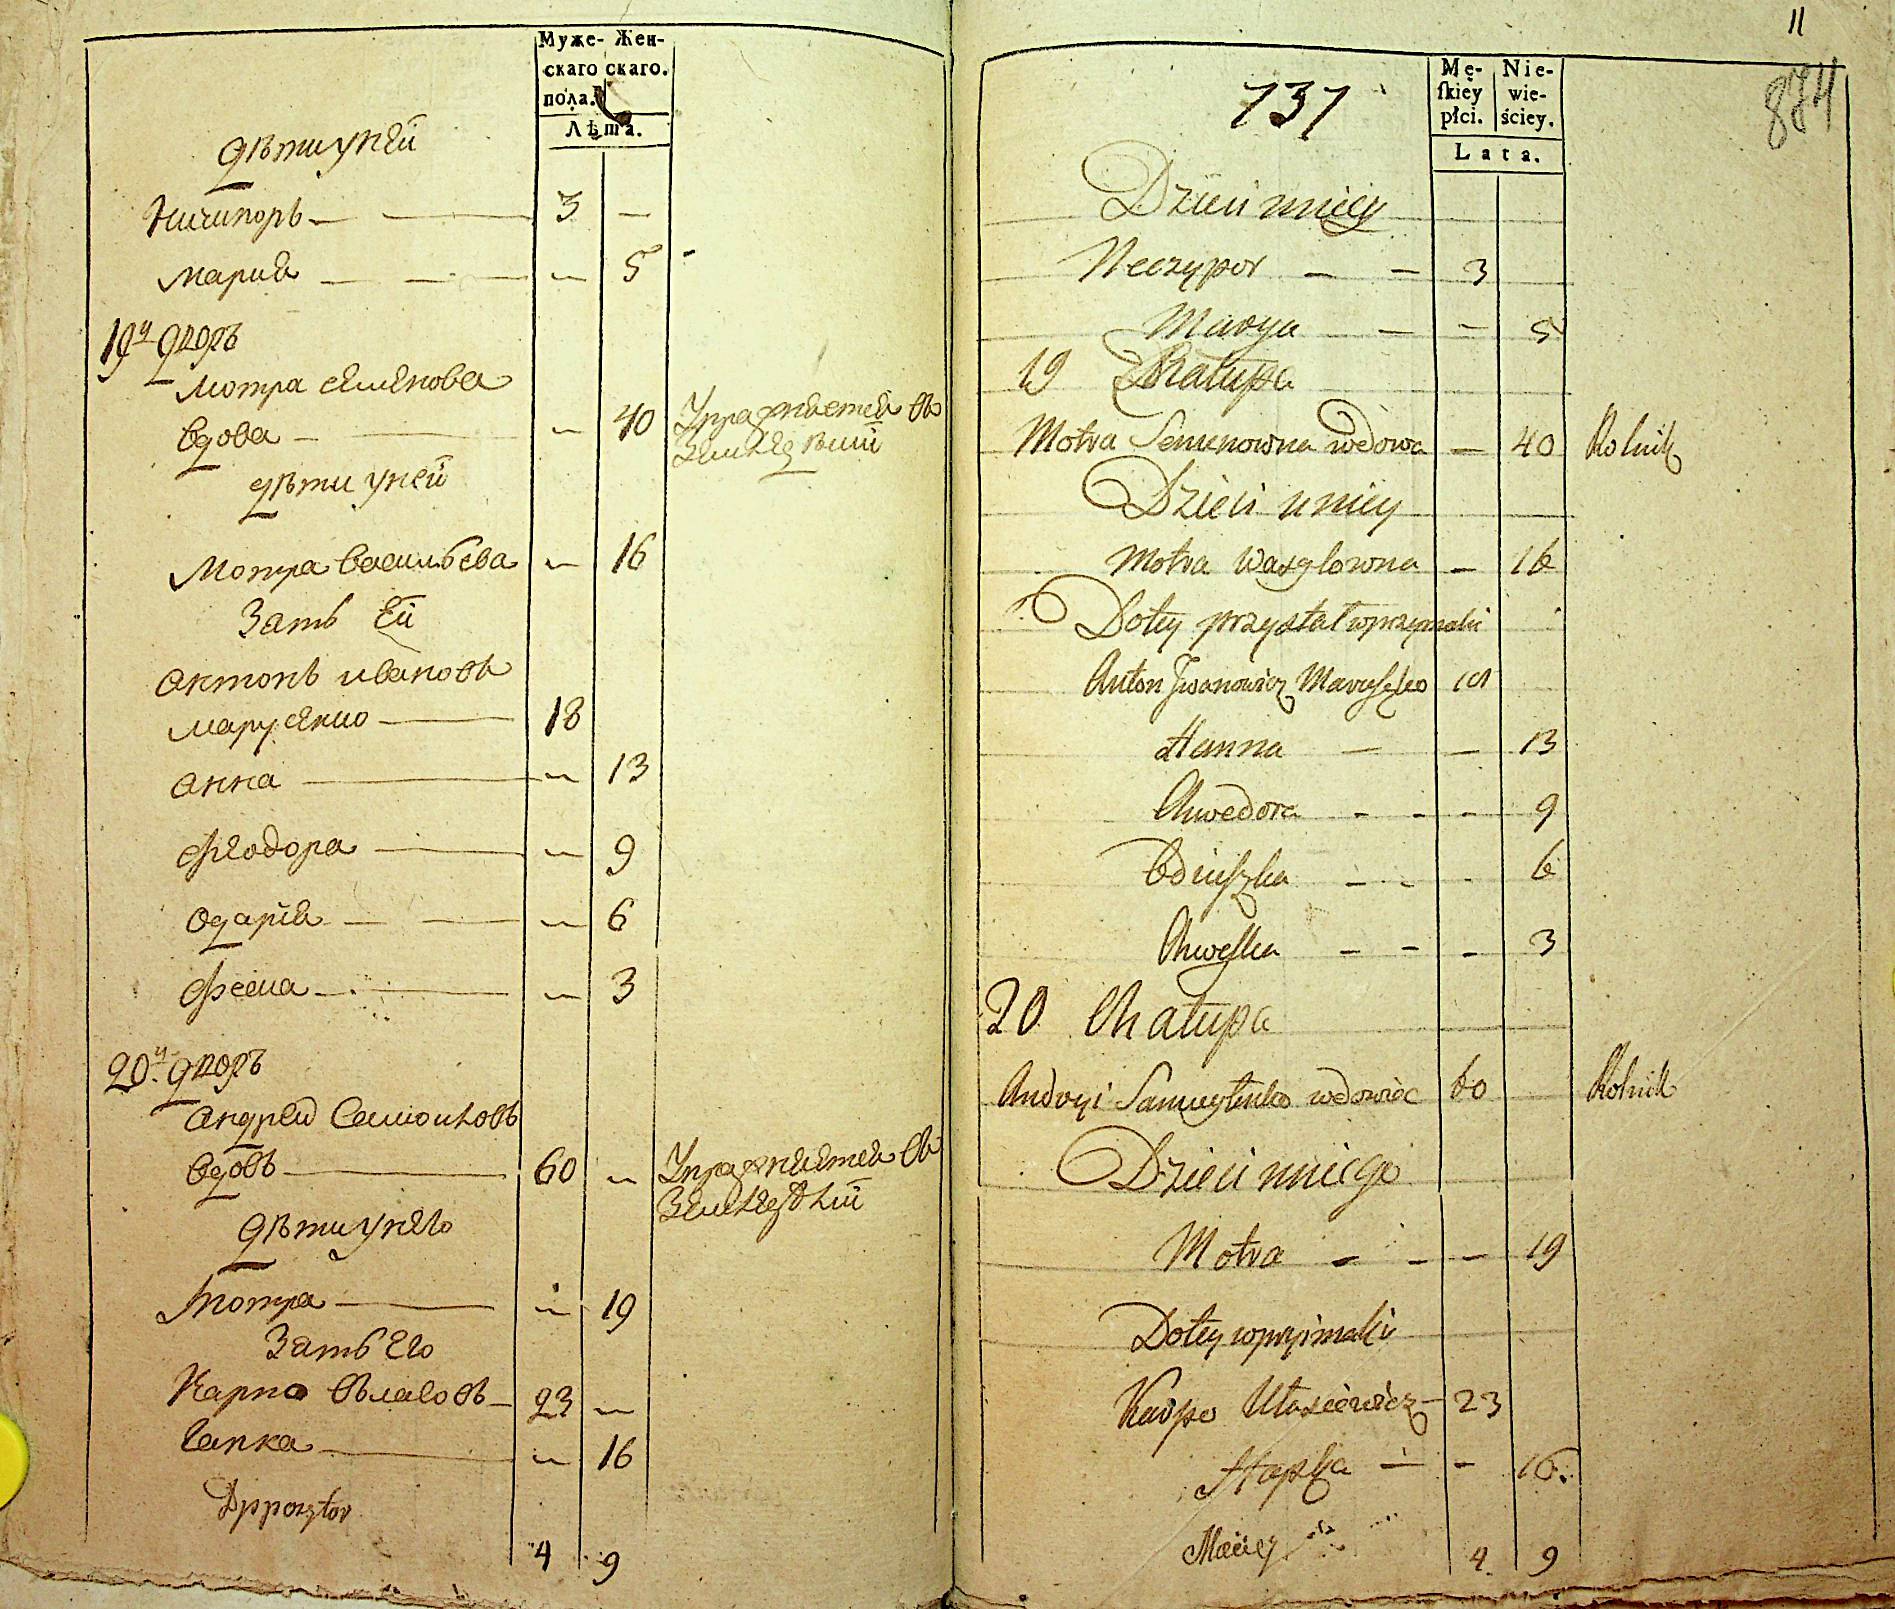 Муже- Жен-
скаго скаго.
пола.
Лѣта.
дѣти у ней
Ничипоръ — — 3 —
Мария — — — 5
19й дворъ
Мотра Семенова
вдова — — 40 Упражняется въ
Земледелии
дѣти у ней
Мотра Васильева — 16
Зать Ей
Антонъ Ивановъ
Марусенко — 18
Анна — — 13
Феодора — — 9
Одария — — — 6
Фесиа — — — 3
20й дворъ
Андрей Самойловъ
вдовъ — 60 — Упражняется въ
Земледѣлии
дѣти у него
Мотра — — 19
Зать Его
Карпо Власовъ — 23 —
Гапка — — 16
4 9
11
874
731
Mę- Nie-
ſkiey wie-
płci. ściey.
Lata.
Dzieci u niey
Neczypor — — 3
Marya — — 5
19 Chałupa
Motra Semenowna wdowa — 40 Rolnik
Dzieci u niey
Motra Wasylowna — 16
Do tey przystał w przymaki
Anton Jwanowicz Maruſzko 18
Hanna — — 13
Chwedora - - - 9
Oduiſzka - - - 6
Chweſka - - - 3
20 Chałupa
Andryi Samuylenko wdowiec 60 Rolnik
Dzieci u niego
Motra - - — 19
Do tey w pryimaki
Karpo Ułasiewicz — 23
Hapka — - 16.
Maciey
4 9